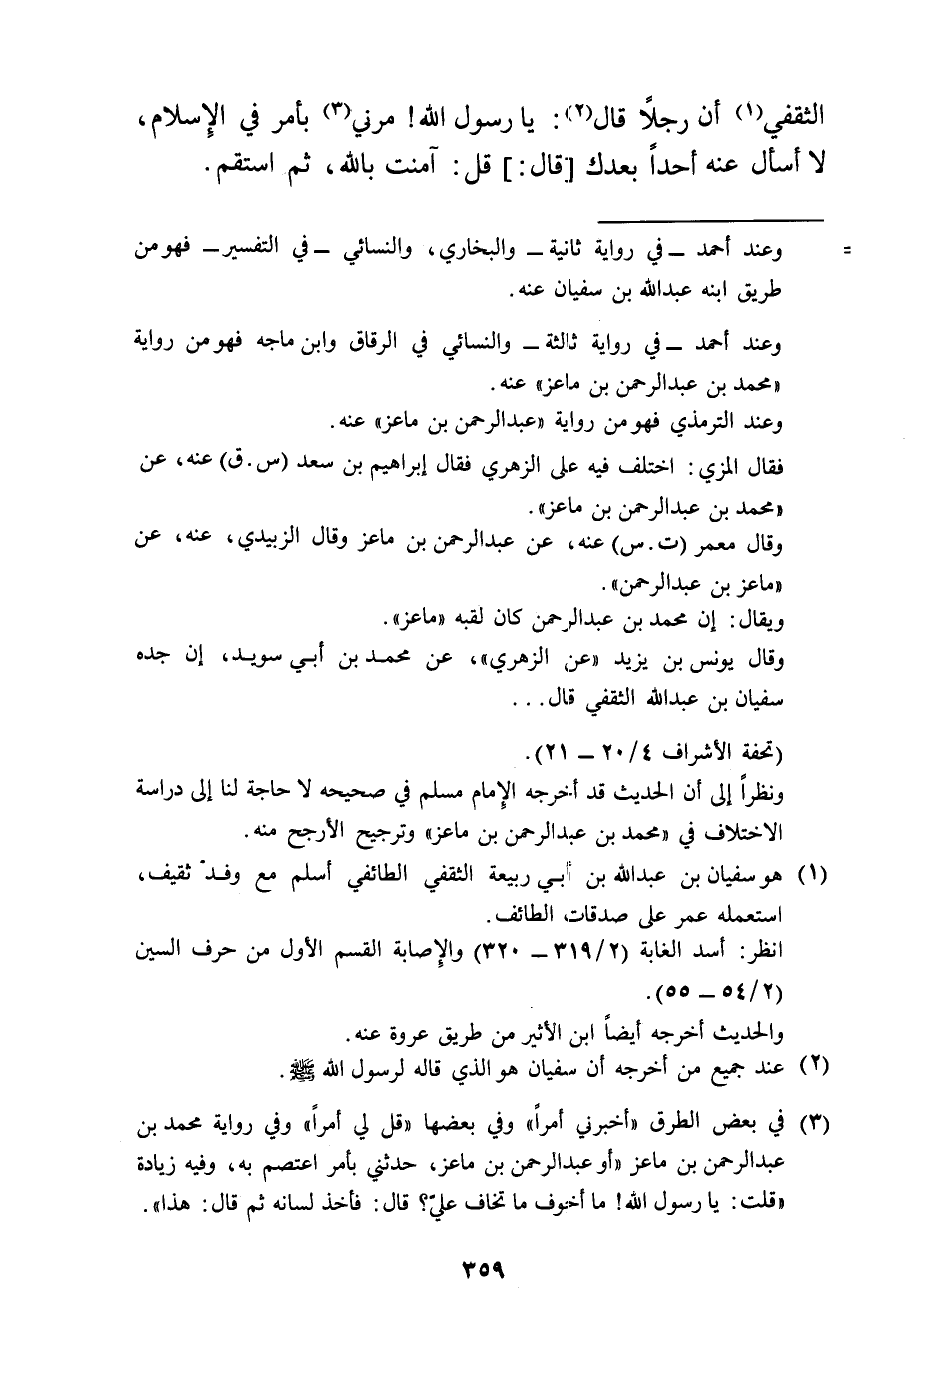 الثقفي(١) أن رجلًا قال(٢): يا رسول الله! مرني(٣) بأمر في الإسلام،
لا أسأل عنه أحداً بعدك [قال:] قل: آمنت بالله، ثم استقم.
= وعند أحمد ــ في رواية ثانية ــ والبخاري، والنسائي ــ في التفسير ــ فهو من
طريق ابنه عبدالله بن سفيان عنه.
وعند أحمد ــ في رواية ثالثة ــ والنسائي في الرقاق وابن ماجه فهو من رواية
«محمد بن عبدالرحمن بن ماعز» عنه.
وعند الترمذي فهو من رواية «عبدالرحمن بن ماعز» عنه.
فقال المزي: اختلف فيه على الزهري فقال إبراهيم بن سعد (س.ق) عنه، عن
«محمد بن عبدالرحمن بن ماعز».
وقال معمر (ت.س) عنه، عن عبدالرحمن بن ماعز وقال الزبيدي، عنه، عن
«ماعز بن عبدالرحمن».
ويقال: إن محمد بن عبدالرحمن كان لقبه «ماعز».
وقال يونس بن يزيد «عن الزهري»، عن محمد بن أبي سويد، إن جده
سفيان بن عبدالله الثقفي قال...
(تحفة الأشراف ٢٠/٤ ــ ٢١).
ونظراً إلى أن الحديث قد أخرجه الإمام مسلم في صحيحه لا حاجة لنا إلى دراسة
الاختلاف في «محمد بن عبدالرحمن بن ماعز» وترجيح الأرجح منه.
(١) هو سفيان بن عبدالله بن أبي ربيعة الثقفي الطائفي أسلم مع وفد ثقيف،
استعمله عمر على صدقات الطائف.
انظر: أسد الغابة (٣١٩/٢ ــ ٣٢٠) والإصابة القسم الأول من حرف السين
(٥٤/٢ ــ ٥٥).
والحديث أخرجه أيضاً ابن الأثير من طريق عروة عنه.
(٢) عند جميع من أخرجه أن سفيان هو الذي قاله لرسول الله ﷺ.
(٣) في بعض الطرق «أخبرني أمراً» وفي بعضها «قل لي أمراً» وفي رواية محمد بن
عبدالرحمن بن ماعز «أو عبدالرحمن بن ماعز، حدثني بأمر اعتصم به، وفيه زيادة
«قلت: يا رسول الله! ما أخوف ما تخاف عليّ؟ قال: فأخذ لسانه ثم قال: هذا».
٣٥٩